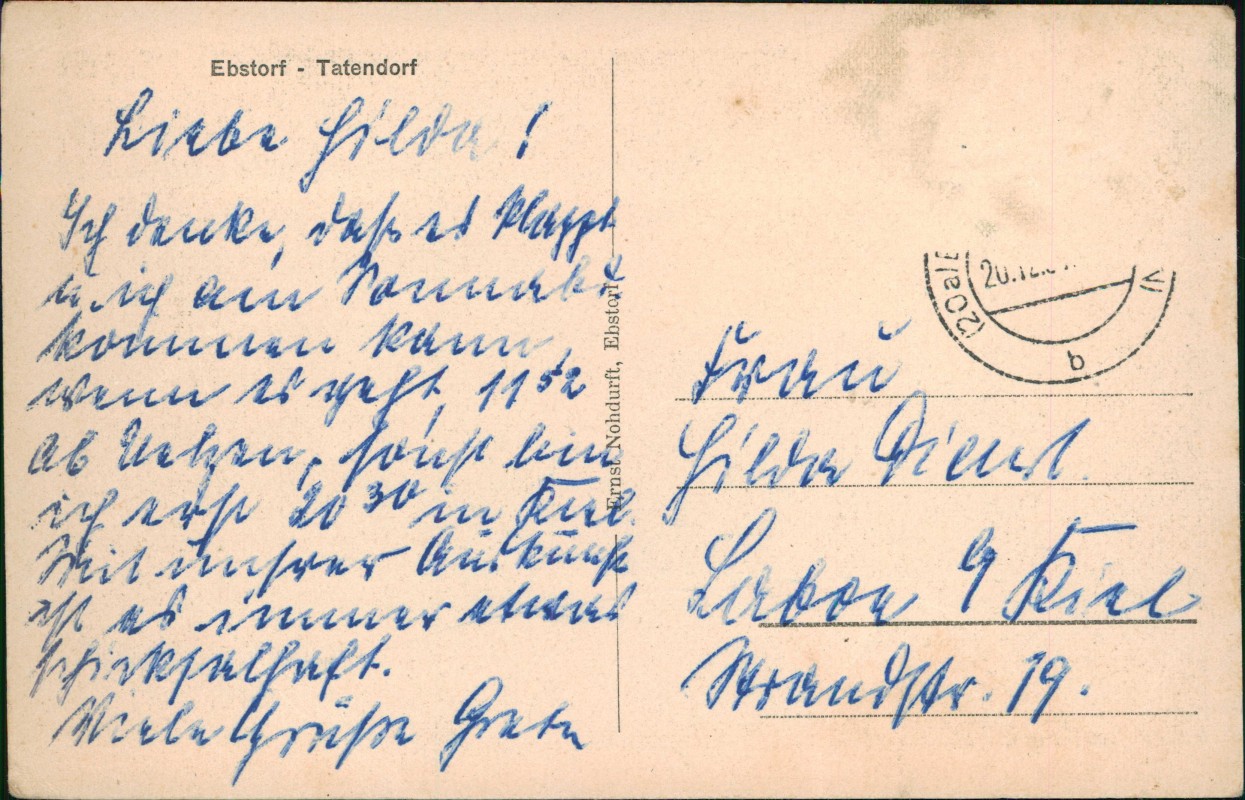 Ebstorf - Tatendorf
Liebe Hilda!
Ich denke, daß es klappt
u. ich am Sonnabd.
kommen kann,
wenn es geht, 11 52
ab Uelzen, sonst bin
ich erst 20 30 in Kiel.
Mit unsrer Auskunft
ist es immer etwas
schicksalhaft.
Viele Grüße Grete
Ernst Nohdurft, Ebstorf
(20a)E
20.12.
b
Frau
Hilda Dienst.
Laboe b/ Kiel
Strandstr. 19.